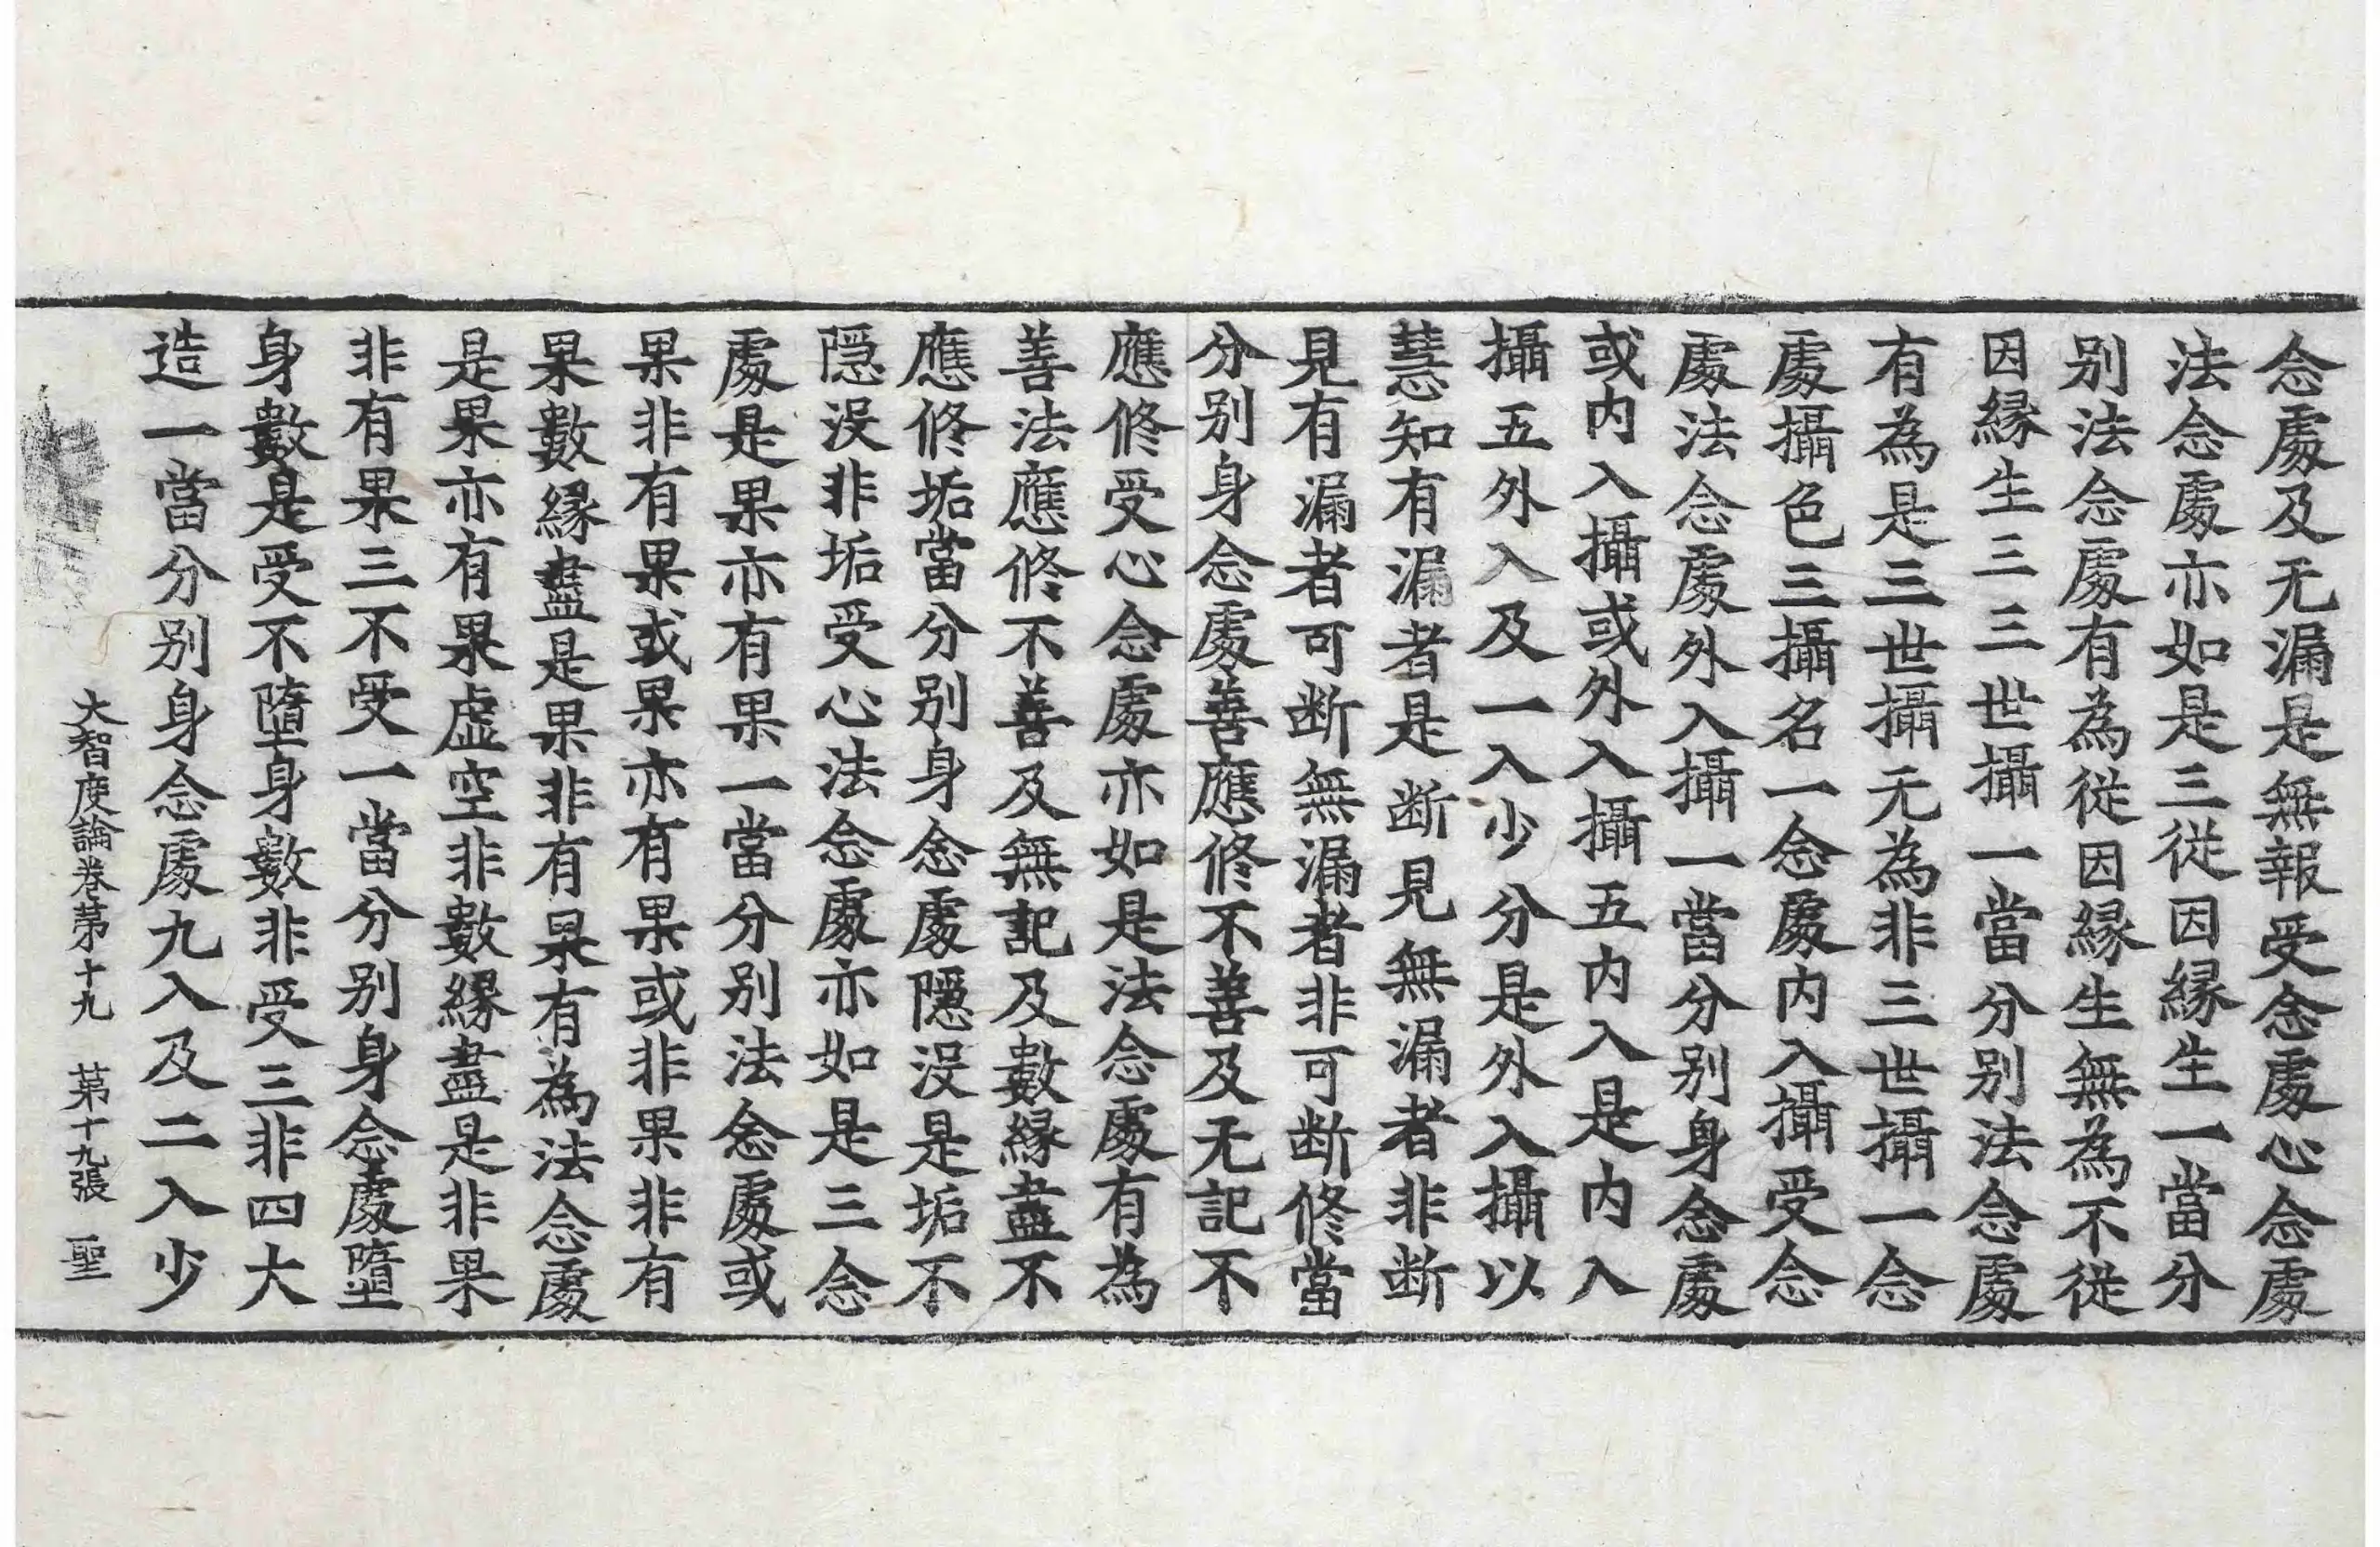 念處及无漏是無報受念處心念處
法念處亦如是三從因緣生一當分
别法念處有為從因緣生無為不從
因緣生三三世攝一當分别法念處
有為是三世攝无為非三世攝一念
處攝色三攝名一念處内入攝受念
處法念處外入攝一當分别身念處
或内入攝或外入攝五内入是内入
攝五外入及一入少分是外入攝以
慧知有漏者是断見無漏者非断
見有漏者可断無漏者非可断修當
分别身念處善應修不善及无記不
應修受心念處亦如是法念處有為
善法應修不善及無記及數緣盡不
應修垢當分别身念處隱没是垢不
隱没非垢受心法念處亦如是三念
處是果亦有果一當分别法念處或
果非有果或果亦有果或非果非有
果數緣盡是果非有果有為法念處
是果亦有果虚空非數緣盡是非果
非有果三不受一當分别身念處墮
身數是受不墮身數非受三非四大
造一當分别身念處九入及二入少
大智度論卷苐十九 苐十九張 聖